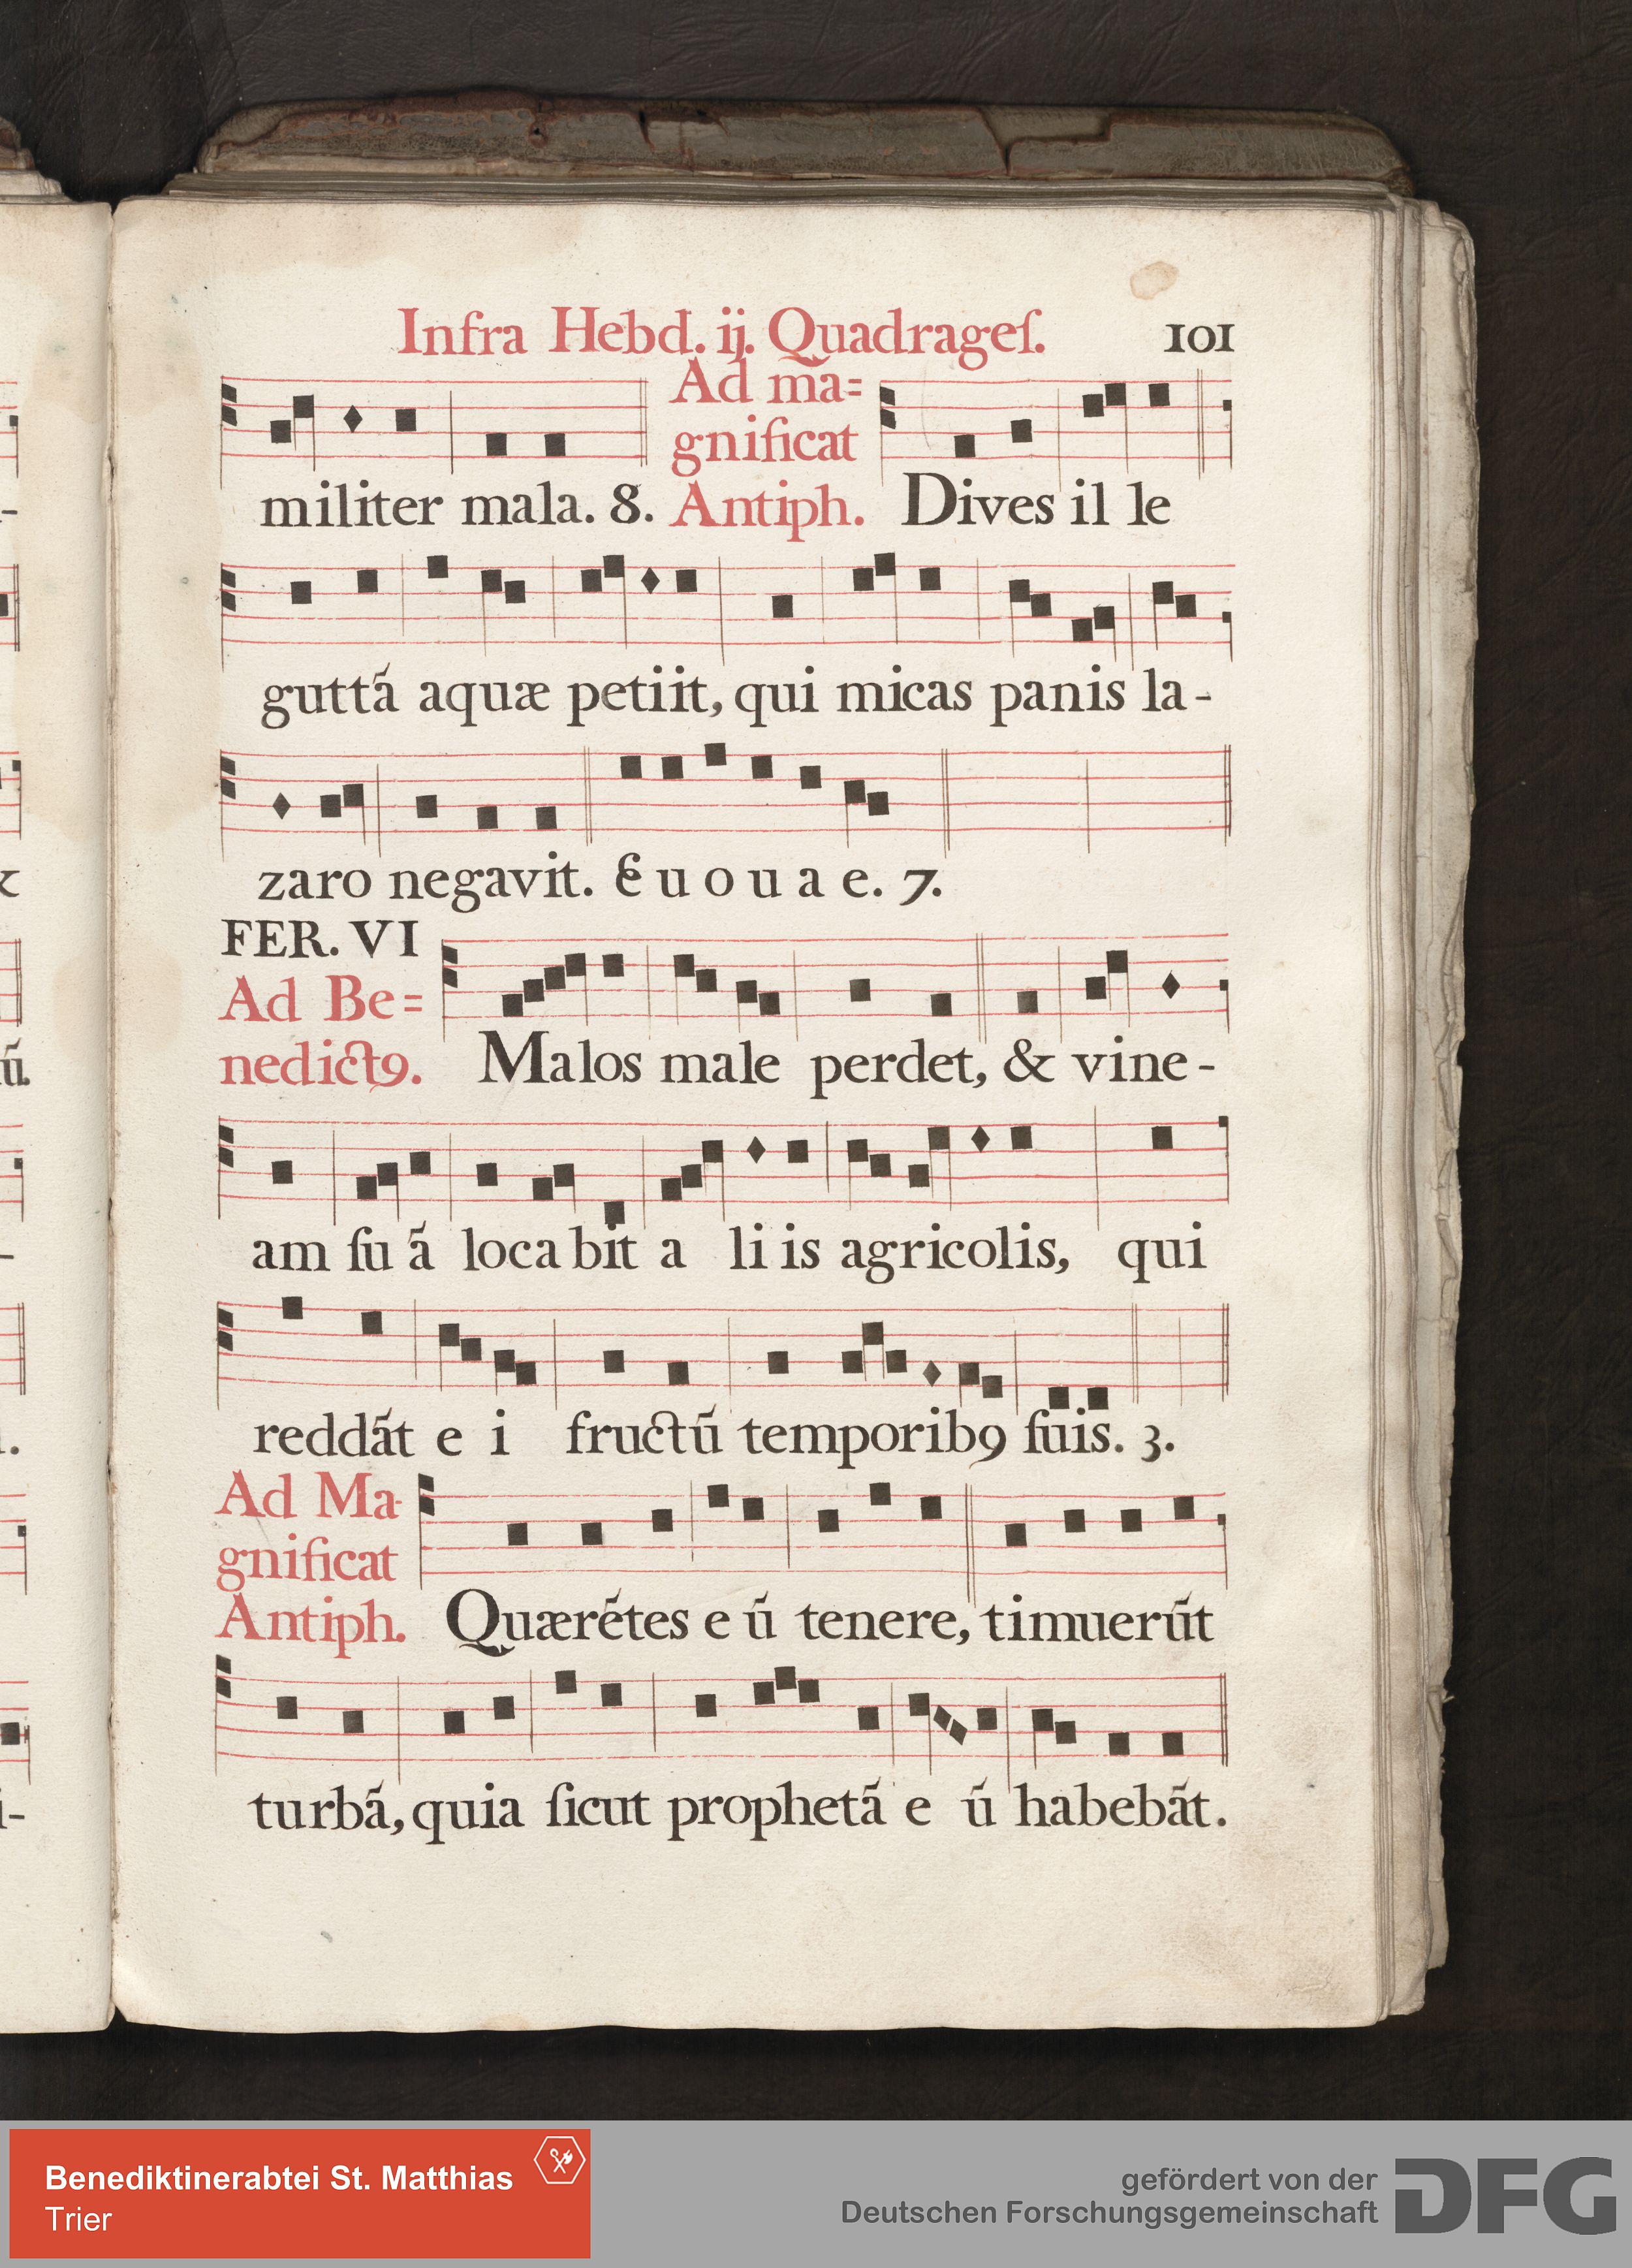 Infra Hebd. ij. Quadrageſ. 101
Ad ma=
gnificat
militer mala. 8. Antiph. Dives il le
guttã aquæ petiit, qui micas panis la-
zaro negavit. E u o u a e. 7.
FER. VI
Ad Be=
nedict9. Malos male perdet, & vine-
am ſu ã loca bit a li is agricolis, qui
reddãt e i fructũ temporib9 ſuis. 3.
Ad Ma-
gnificat
Antiph. Quærẽtes e ũ tenere, timuerũt
turbã, quia ſicut prophetã e ũ habebãt.
Benediktinerabtei St. Matthias
Trier
gefördert von der
Deutschen Forschungsgemeinschaft
DFG